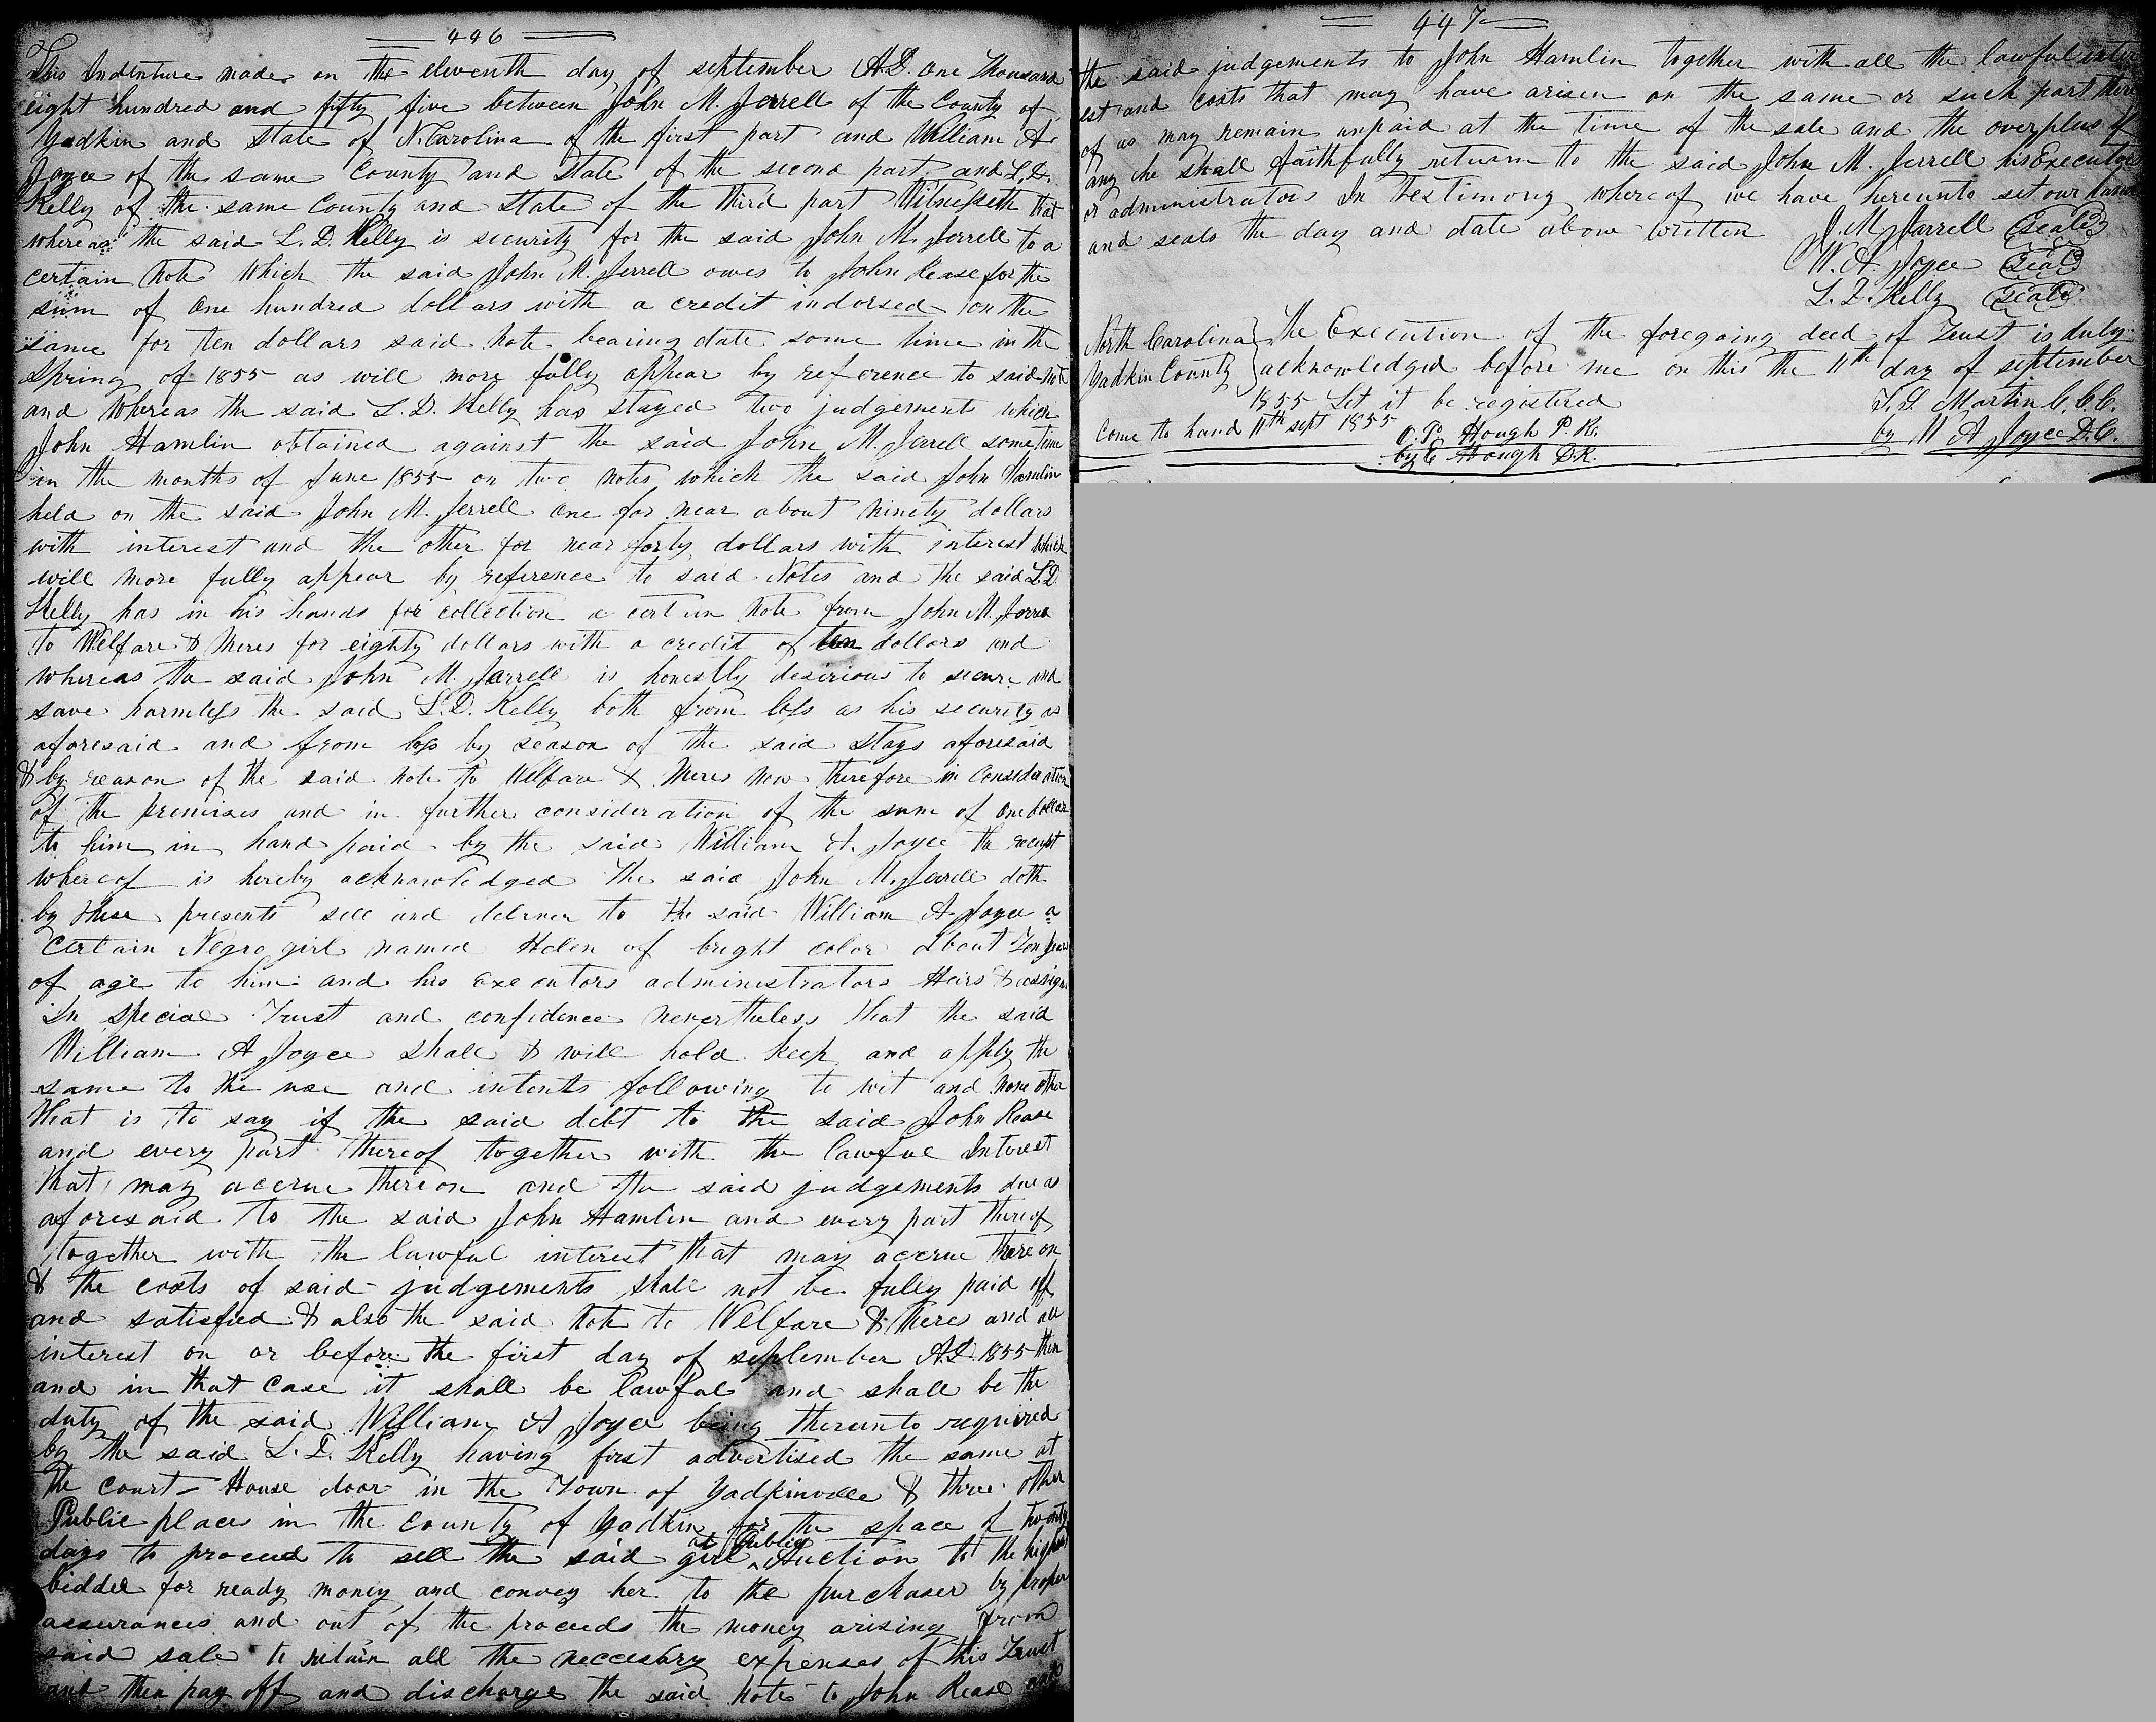 446
This Indenture made on the eleventh day of september A.D. One Thousand
eight hundred and fifty five between John M. Jerrell of the County of
Yadkin and State of N. Carolina of the first part and William A.
Joyce of the same County and State of the second part and L. D.
Kelly of the same County and State of the third part Witnesseth that
whereas the said L. D. Kelly is security for the said John M. Jerrell to a
certain Note Which the said John M. Jerrell owes to John Rease for the
sum of One hundred dollars with a credit indorsed on the
same for ten dollars said note bearing date some time in the
Spring of 1855 as will more fully appear by reference to said note
and Whereas the said L. D. Kelly has stayed two judgements which
John Hamlin obtained against the said John M. Jerrell some time
in the months of June 1855 on two notes which the said John Hamlin
held on the said John M. Jerrell One for near about ninety dollars
with interest and the other for near forty dollars with interest which
will more fully appear by reference to said Notes and the said L. D.
Kelly has in his hands for collection a certain Note from John M. Jerrell
to Welfare & Meres for eighty dollars with a credit of ten dollars and
whereas the said John M. Jarrell is honestly desirious to secure and
save harmless the said L. D. Kelly both from loss as his security as
aforesaid and from loss by reason of the said Stays aforesaid
& by reason of the said note to Welfare & Meres now therefore in Consideration
of the premises and in further consideration of the sum of One dollar
to him in hand paid by the said William A. Joyce the receipt
whereof is hereby acknowledged The said John M. Jerrell doth
by these presents sell and deliver to the said William A. Joyce a
certain Negro girl named Helen of bright color about Ten years
of age to him and his executors administrators Heirs & assigns
In special Trust and confidence nevertheless that the said
William A Joyce shall & will hold keep and apply the
same to the use and intents following to wit and none other
that is to say if the said debt to the said John Rease
and every part thereof together with the lawful Interest
that may accrue thereon and the said judgements due as
aforesaid to the said John Hamlin and every part thereof
together with the lawful interest that may accrue thereon
& the costs of said judgements shall not be fully paid off
and satisfied & also the said Note to Welfare & Meres and all
interest on or before the first day of september A.D. 1855 then
and in that case it shall be lawful and shall be the
duty of the said William A Joyce being thereunto required
by the said L. D. Kelly having first advertised the same at
the court-House door in the Town of Yadkinville & three other
Public place in the county of Yadkin for the space of twenty
days to proceed to sell the said girl at Public Auction to the highest
bidder for ready money and convey her to the purchaser by proper
assurances and out of the proceeds the money arising from
said sale to retain all the necessary expenses of this Trust
and then pay off and discharge the said note to John Rease and
447
the said judgements to John Hamlin together with all the lawful inter
est and costs that may have arisen on the same or such part there
of as may remain unpaid at the time of the sale and the overplus if
any he shall faithfully return to the said John M. Jerrell his Executors
or administrators In testimony whereof we have hereunto set our hands
and seals the day and date above written J. M Jarrell (Seal)
W. A. Joyce (Seal)
L. D. Kelly (Seal)
North Carolina } The Execution of the foregoing deed of Trust is duly
Yadkin County } acknowledged before me on this the 11th day of september
1855 Let it be registered T. S. Martin C.C.C.
Come to hand 11th sept 1855 O. P. Hough P. R. by W A Joyce D.C.
by C Hough D.R.